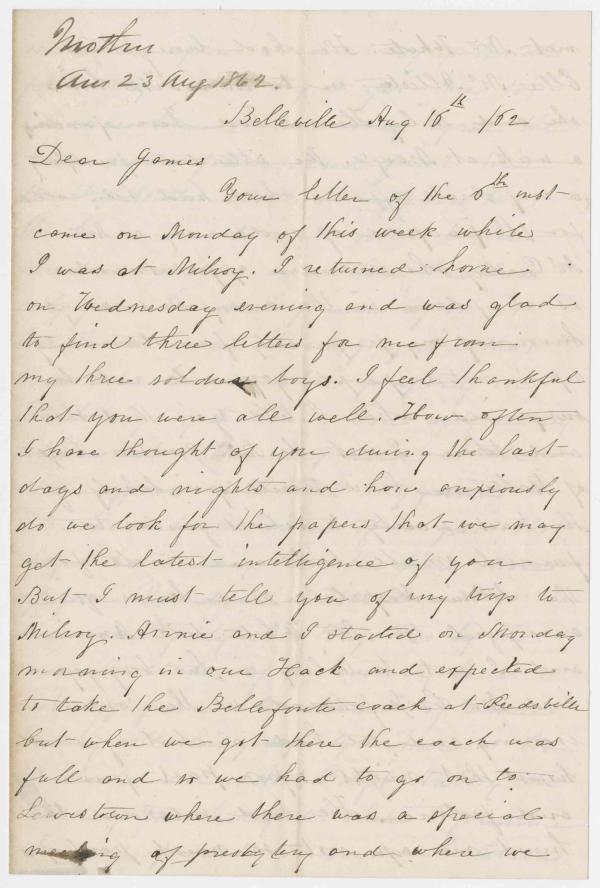 Mother
Ans 23 Aug 1862.
Belleville Aug 16th /62
Dear James
Your letter of the 6th inst
came on Monday of this week while
I was at Milroy. I returned home
on Wednesday evening and was glad
to find three letters for me from
my three soldier boys. I feel thankful
that you were all well. How often
I have thought of you during the last
days and nights and how anxiously
do we look for the papers that we may
get the latest intelligence of you
But I must tell you of my trip to
Milroy. Annie and I started on Monday
morning in our Hack and expected
to take the Bellefonte coach at Reedsville
but when we got there the coach was
full and so we had to go on to
Lewistown where there was a special
meeting of presbytery and where we